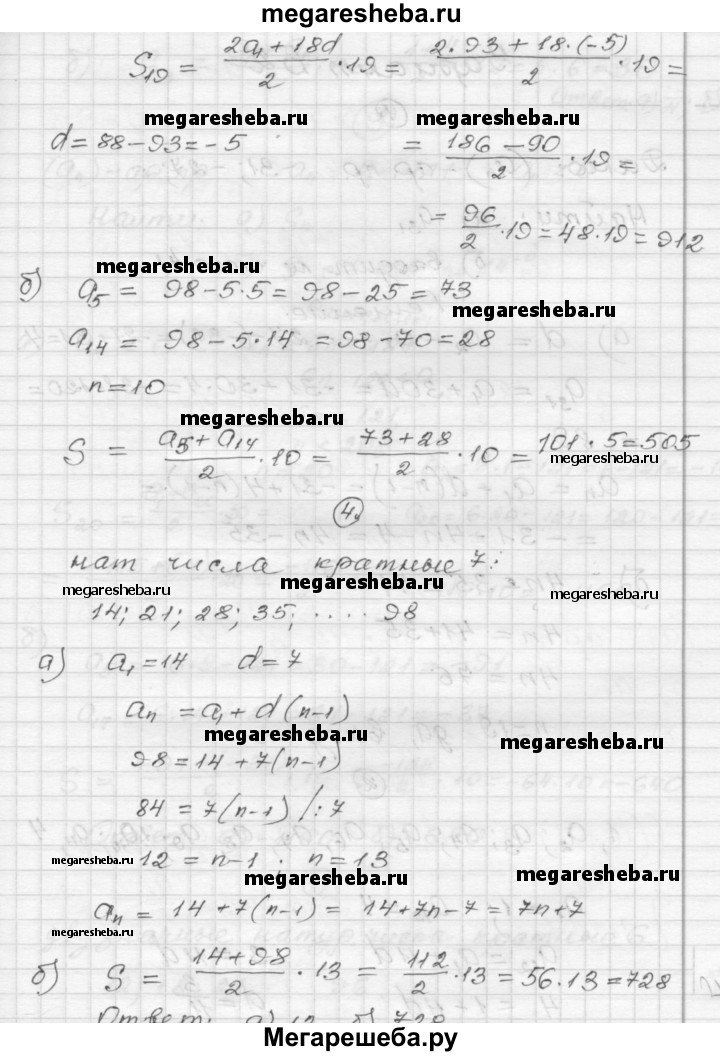 megaresheba.ru
S₁₉ = (2a₁ + 18d)/2 · 19 = (2·93 + 18·(-5))/2 · 19 =
megaresheba.ru megaresheba.ru
d = 88 - 93 = -5 = (186 - 90)/2 · 19 =
= 96/2 · 19 = 48·19 = 912
megaresheba.ru
б) a₅ = 98 - 5·5 = 98 - 25 = 73
megaresheba.ru
a₁₄ = 98 - 5·14 = 98 - 70 = 28
n = 10
megaresheba.ru
S = (a₅ + a₁₄)/2 · 10 = (73 + 28)/2 · 10 = 101 · 5 = 505
megaresheba.ru
4.
нат числа кратные 7:
megaresheba.ru megaresheba.ru megaresheba.ru
14; 21; 28; 35; .... 98
а) a₁ = 14 d = 7
aₙ = a₁ + d(n-1)
megaresheba.ru megaresheba.ru
98 = 14 + 7(n-1)
84 = 7(n-1) /:7
megaresheba.ru 12 = n-1 ; n = 13
megaresheba.ru megaresheba.ru
aₙ = 14 + 7(n-1) = 14 + 7n - 7 = 7n + 7
б) S = (14 + 98)/2 · 13 = 112/2 · 13 = 56·13 = 728
Ответ: а) 13 б) 728
Мегарешеба.ру